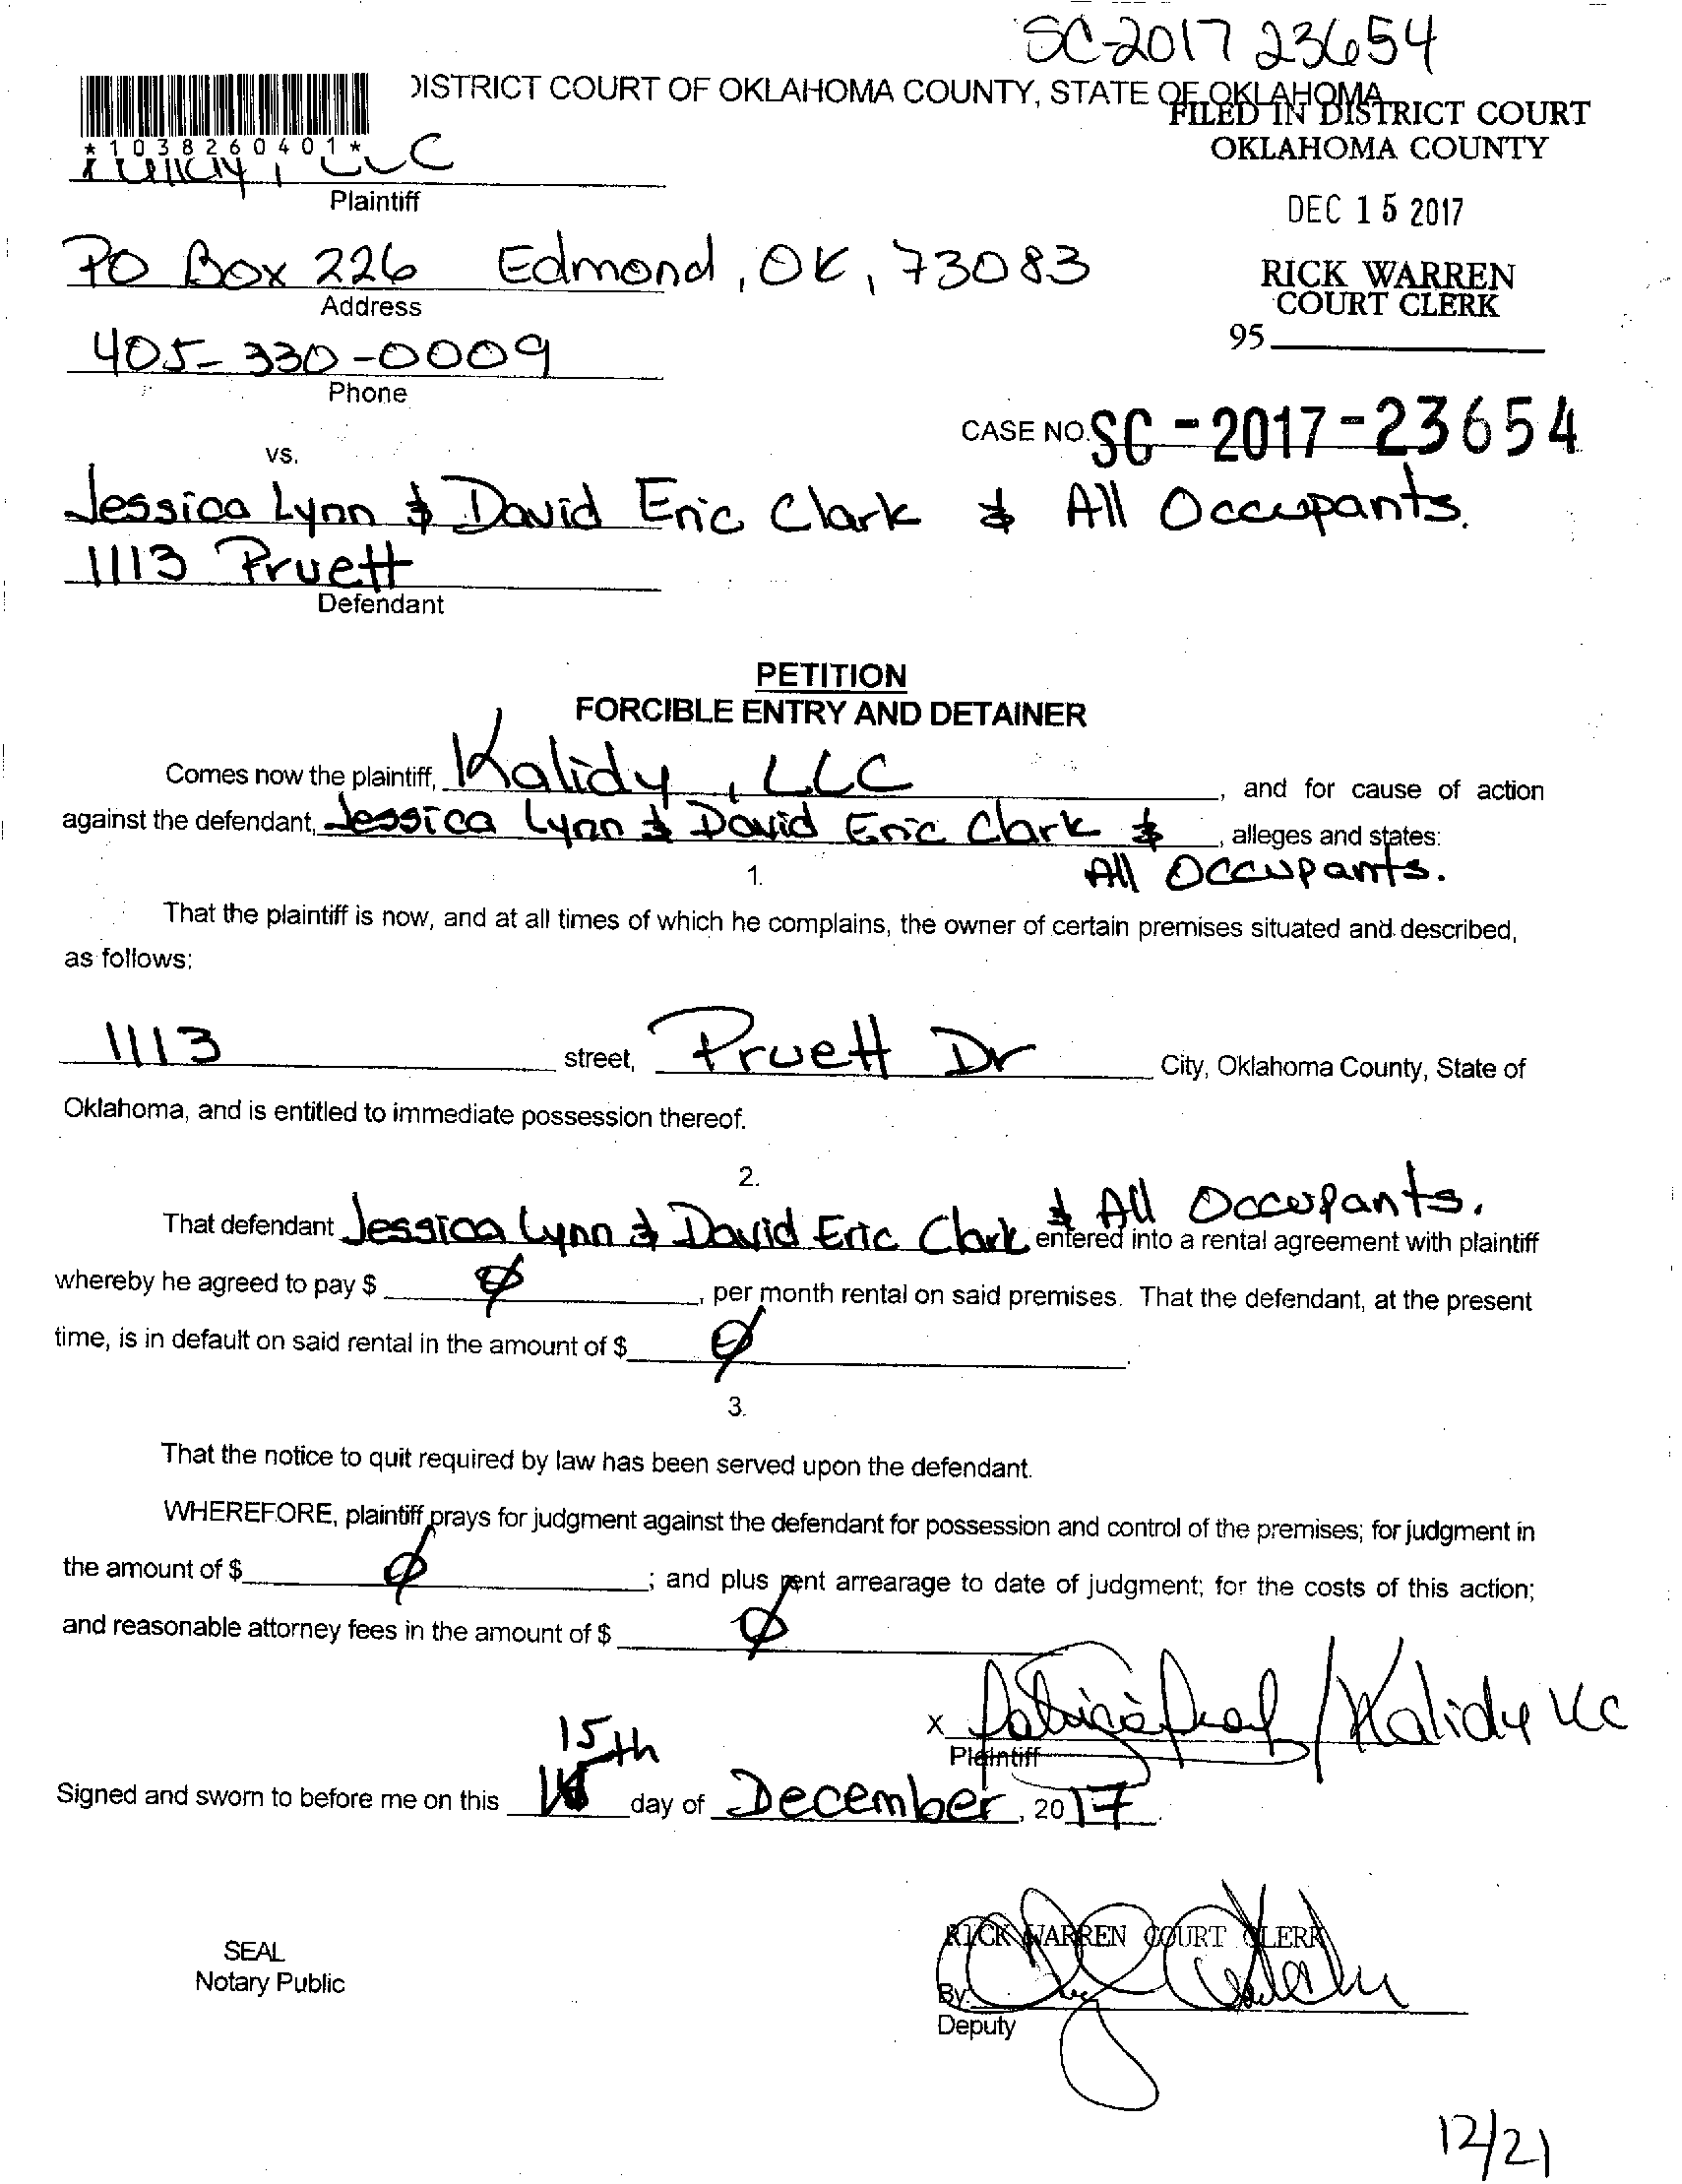 SC-2017 23654
DISTRICT COURT OF OKLAHOMA COUNTY, STATE OF OKLAHOMA
FILED IN DISTRICT COURT
OKLAHOMA COUNTY
*1038260401*
LLC
Plaintiff
DEC 15 2017
PO Box 226 Edmond, OK, 73083
Address
RICK WARREN
COURT CLERK
95
405-330-0009
Phone
CASE NO. SC-2017-23654
vs.
Jessica Lynn & David Eric Clark & All Occupants.
1113 Pruett
Defendant
PETITION
FORCIBLE ENTRY AND DETAINER
Comes now the plaintiff, Kalidy, LLC, and for cause of action
against the defendant, Jessica Lynn & David Eric Clark &, alleges and states:
All Occupants.
1.
That the plaintiff is now, and at all times of which he complains, the owner of certain premises situated and described,
as follows:
1113 street, Pruett Dr City, Oklahoma County, State of
Oklahoma, and is entitled to immediate possession thereof.
2.
That defendant Jessica Lynn & David Eric Clark & All Occupants. entered into a rental agreement with plaintiff
whereby he agreed to pay $ Ø, per month rental on said premises. That the defendant, at the present
time, is in default on said rental in the amount of $ Ø.
3.
That the notice to quit required by law has been served upon the defendant.
WHEREFORE, plaintiff prays for judgment against the defendant for possession and control of the premises; for judgment in
the amount of $ Ø; and plus rent arrearage to date of judgment; for the costs of this action;
and reasonable attorney fees in the amount of $ Ø
x / Kalidy LLC
Plaintiff
15th
Signed and sworn to before me on this day of December, 2017.
RICK WARREN COURT CLERK
SEAL
Notary Public
By:
Deputy
12/21